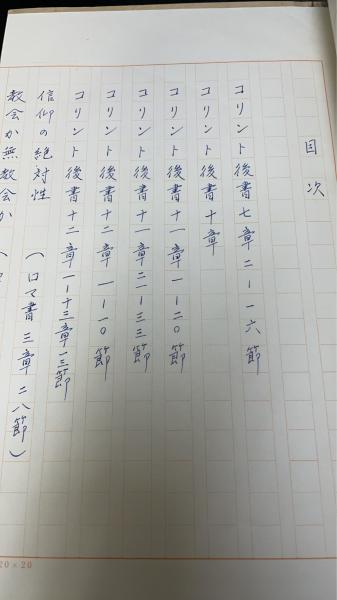 目次
コリント後書七章二ー一六節
コリント後書十章
コリント後書十一章一ー二〇節
コリント後書十一章二一ー三三節
コリント後書十二章一ー一〇節
コリント後書十二章一一ー十三章一三節
信仰の絶対性 (ロマ書三章二八節)
教会か無教会か (
20×20